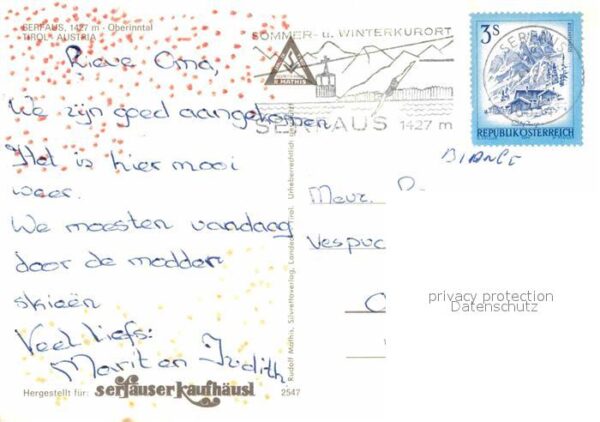 SERFAUS, 1427 m - Oberinntal
TIROL - AUSTRIA
Lieve Oma,
We zijn goed aangekomen
Het is hier mooi
weer.
We moesten vandaag
door de modder
skieën
Veel liefs:
Marit en Judith.
Hergestellt für: serfauserkaufhäusl
2547
Rudolf Mathis, Silvrettaverlag, Landeck-Tirol. Urheberrechtlich
SOMMER- u. WINTERKURORT
R MATHIS
SERFAUS 1427 m
3S
SERFAUS
REPUBLIK ÖSTERREICH
Mevr.
Vespuc
privacy protection
Datenschutz